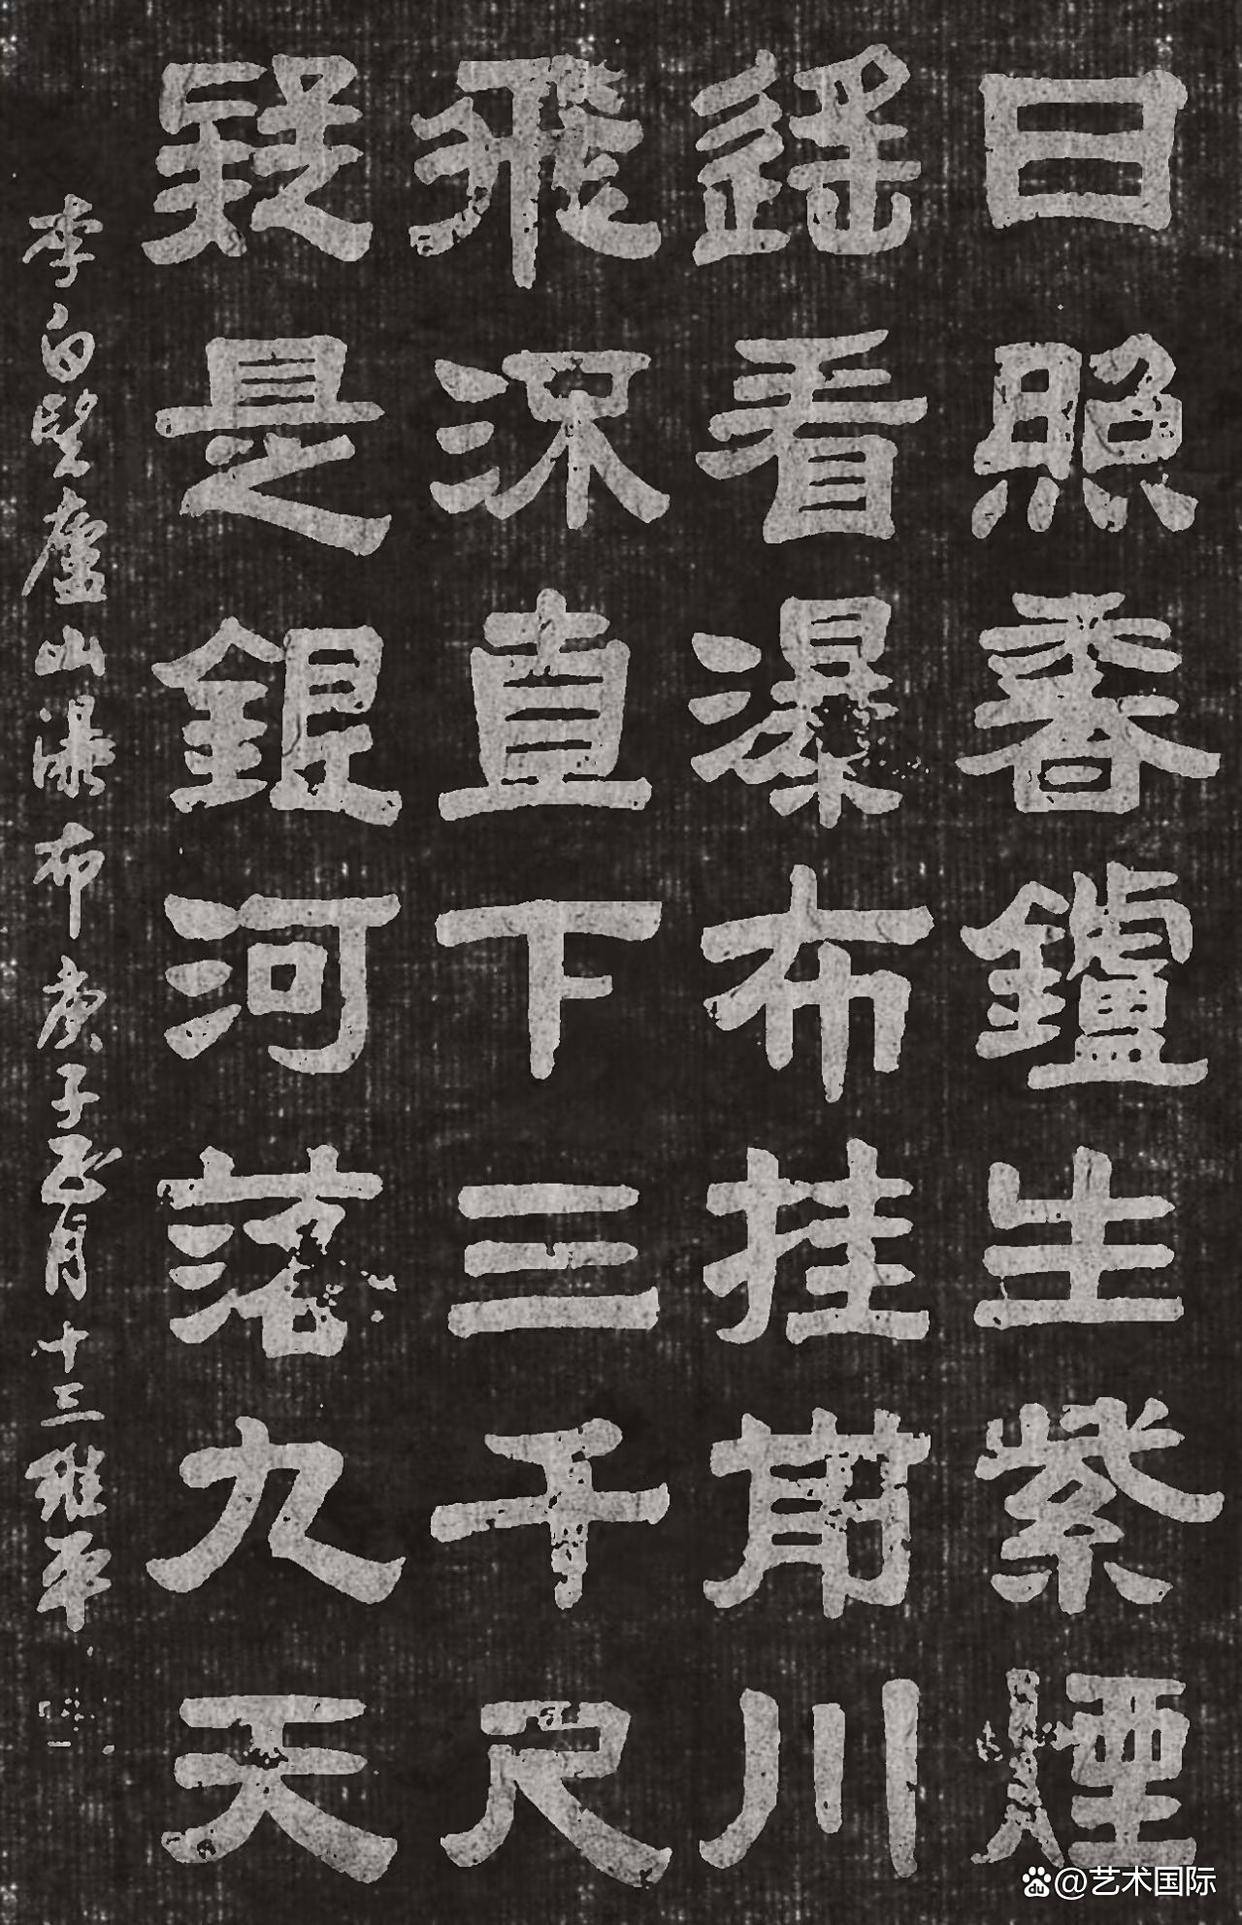 日照香鑪生紫煙
遥看瀑布挂前川
飛流直下三千尺
疑是銀河落九天
李白望廬山瀑布庚子正月十三繼平
@艺术国际